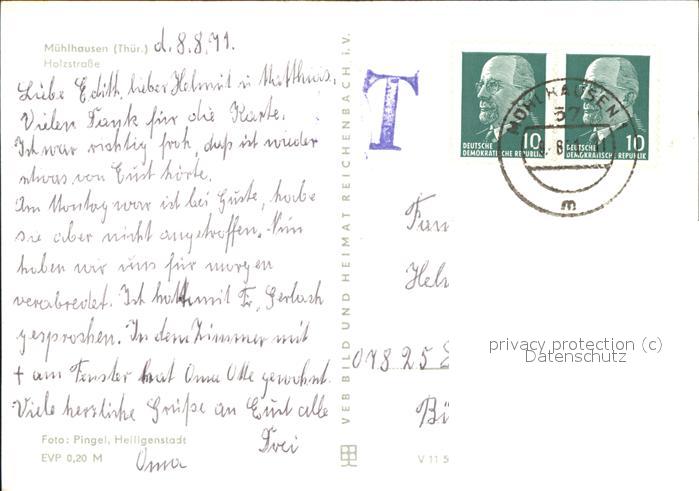 Mühlhausen (Thür.) d. 8.8.71.
Holzstraße
Liebe Edith, lieber Helmut u. Matthias,
Vielen Dank für die Karte.
Ich war richtig froh, daß ich wieder
etwas von Euch hörte.
Am Montag war ich bei Guste, habe
sie aber nicht angetroffen. Nun
haben wir uns für morgen
verabredet. Ich hatte mit Fr. Gerlach
gesprochen. In dem Zimmer mit
+ am Fenster hat Oma Otte gewohnt.
Viele herzliche Grüße an Euch alle
Drei
Oma
Foto: Pingel, Heiligenstadt
EVP 0,20 M
VEB BILD UND HEIMAT REICHENBACH i. V.
V 11 5
T
10
DEUTSCHE
DEMOKRATISCHE REPUBLIK
10
DEUTSCHE
DEMOKRATISCHE REPUBLIK
MÜHLHAUSEN
57
8
m
Fam
Helm
07825
Bü
privacy protection (c)
Datenschutz